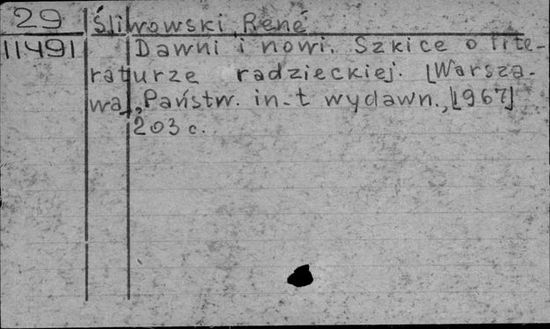 29 Śliwowski, René
11491 Dawni i nowi. Szkice o lite-
raturze radzieckiej. [Warsza-
wa], Państw. in-t wydawn., [1967]
203 c.